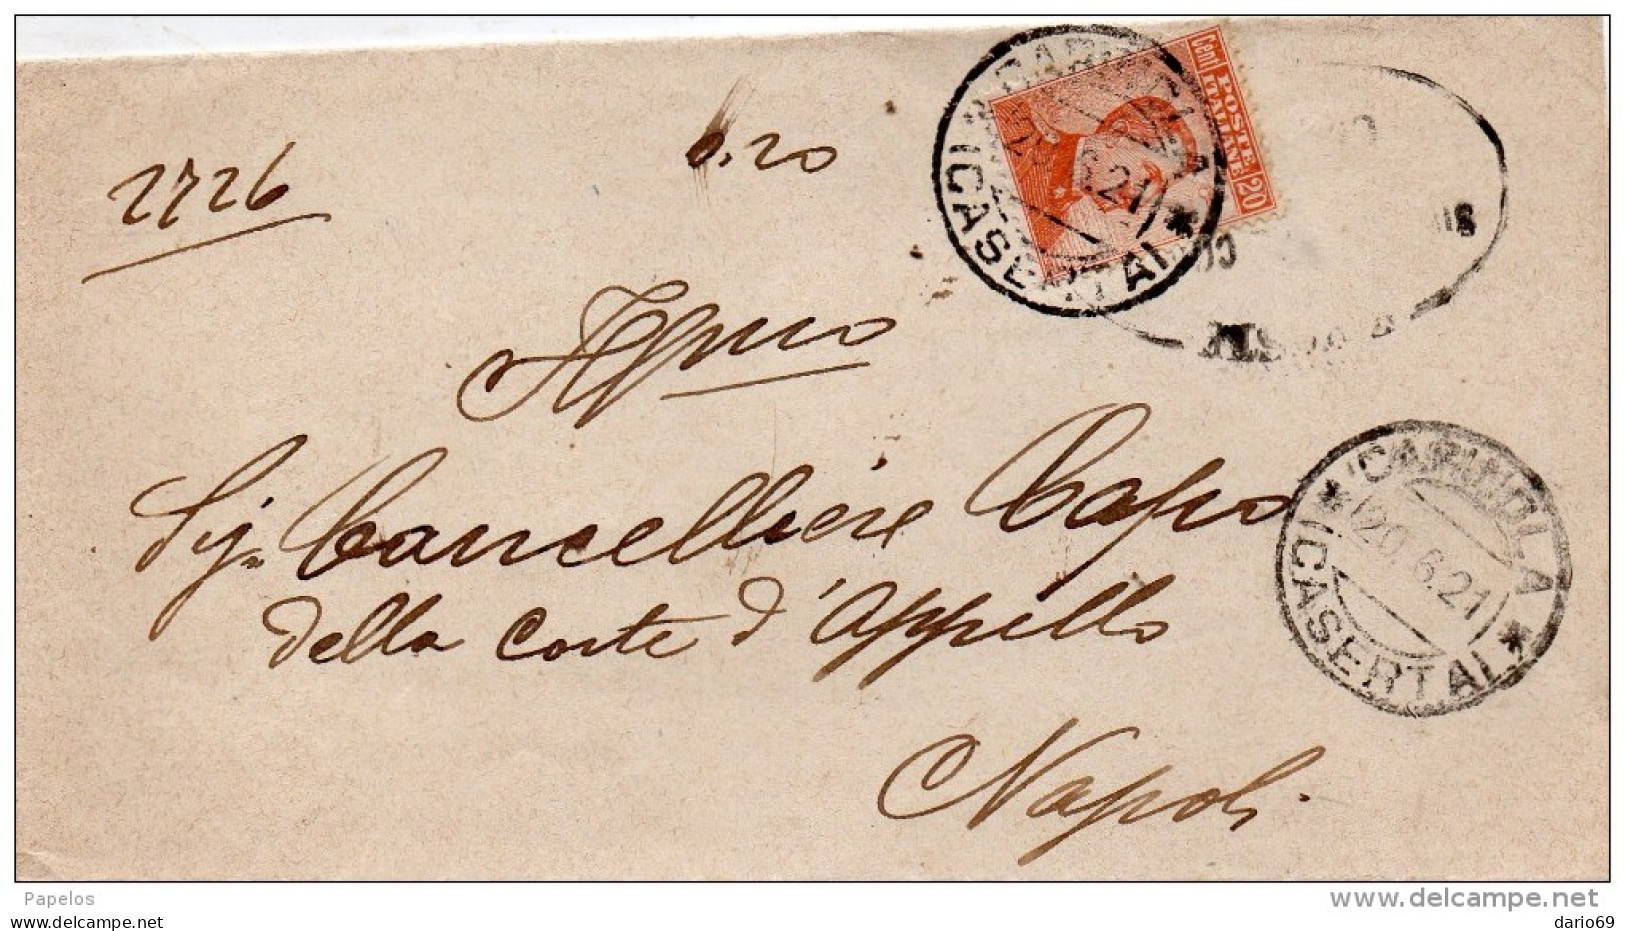 2726
0.20
Cent
POSTE
ITALIANE
20
CARINOLA
20.6.21
(CASERTA)
Sig.
Cancelliere Capo
della Corte d'Appello
Napoli
CARINOLA
20.6.21
(CASERTA)
Papelos
www.delcampe.net
dario69